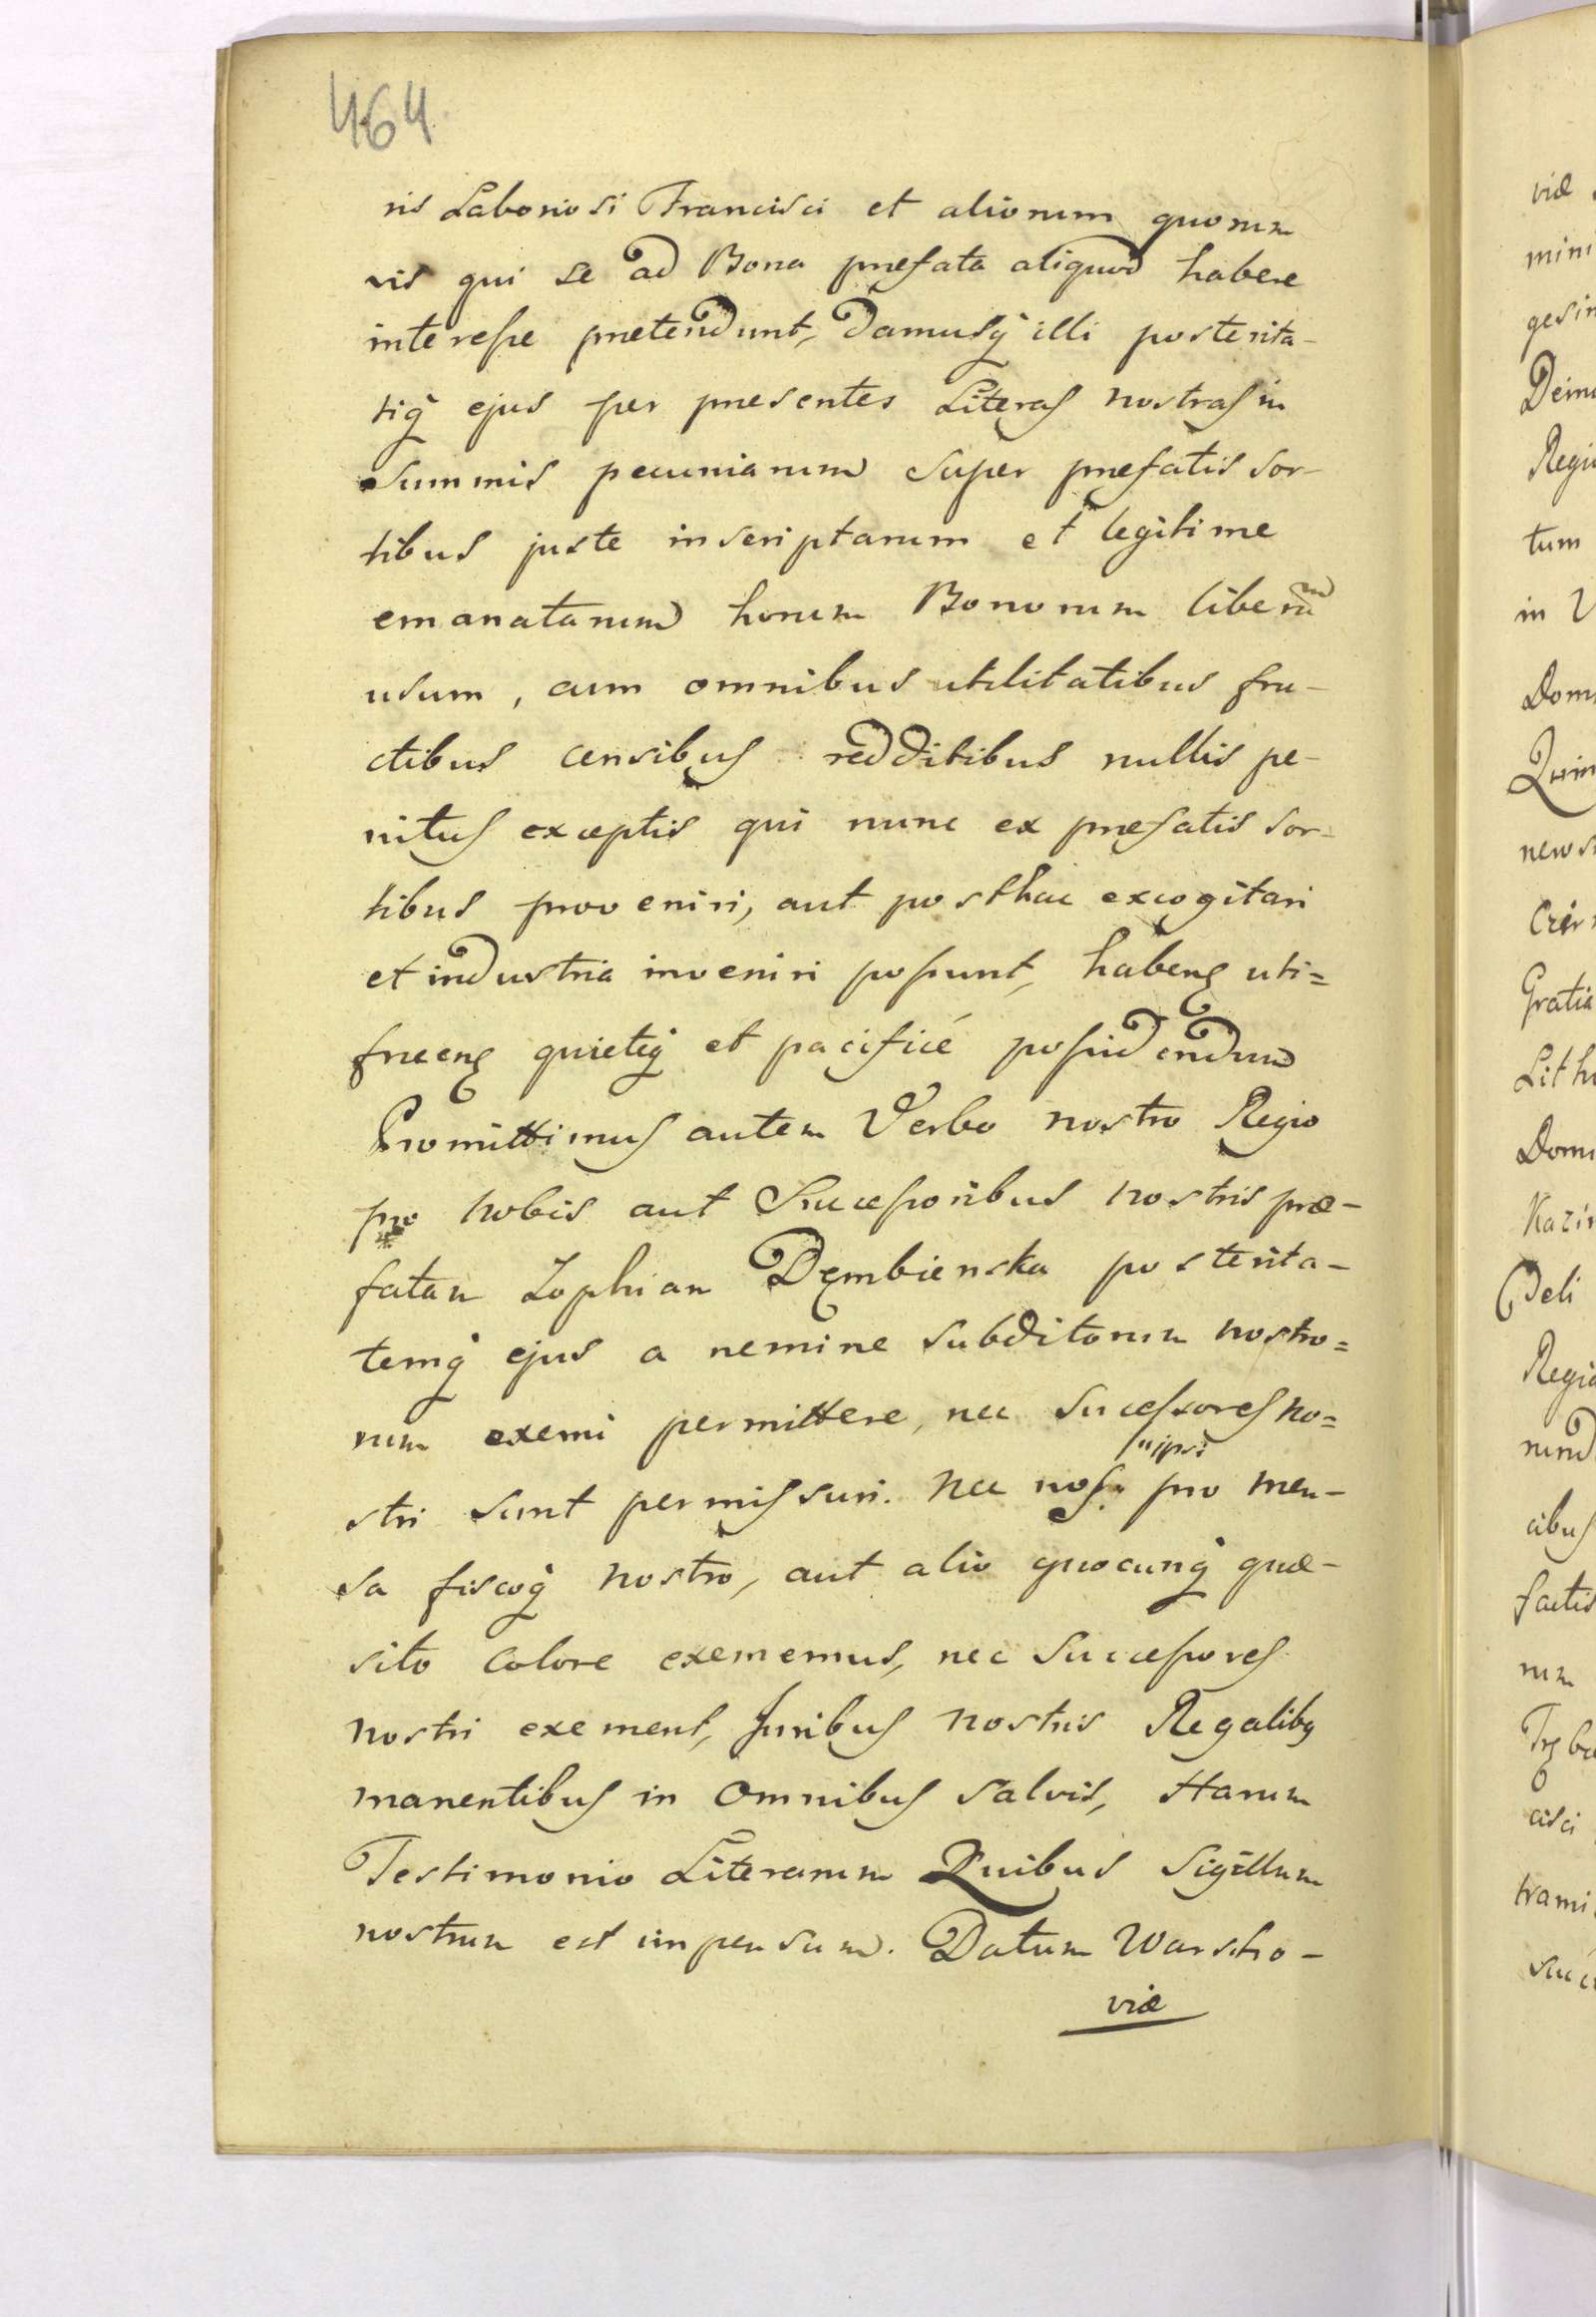 464
ris Laboriosi Francisci et aliorum quorum
vis qui se ad Bona prefata aliquod habere
interesse pretendunt, damusq illi posterita-
tiq ejus per presentes Literas nostras in
Summis pecuniarum super prefatis sor-
tibus juste inscriptarum et legitime
emanatarum horum Bonorum liberum
usum, cum omnibus utilitatibus fru-
ctibus censibus redditibus nullis pe-
nitus exceptis qui nunc ex prefatis sor-
tibus proveniri, aut posthac excogitari
et industria inveniri possunt, habend uti=
fruend quieteq et pacificé possidendum
Promittimus autem Verbo nostro Regio
pro nobis aut Successoribus nostris præ-
fatam Zophiam Dembienska posterita-
temq ejus a nemine subditorum nostro=
rum exemi permittere, nec successores no=
stri sunt permissuri. Nec nos ipsi pro men-
sa fiscoq nostro, aut alio quocunq quæ-
sito colore exememus, nec Successores
nostri exement, Juribus nostris Regalibq
manentibus in omnibus salvis, Harum
Testimonio Literarum Quibus Sigillum
nostrum est impensum. Datum Warscho-
viæ
viæ
mini
gesim
tum
in V
Dom
Quin
Gratia
Lith
Domi
deli
Regia
rum
cibus
factis
rum
cisci